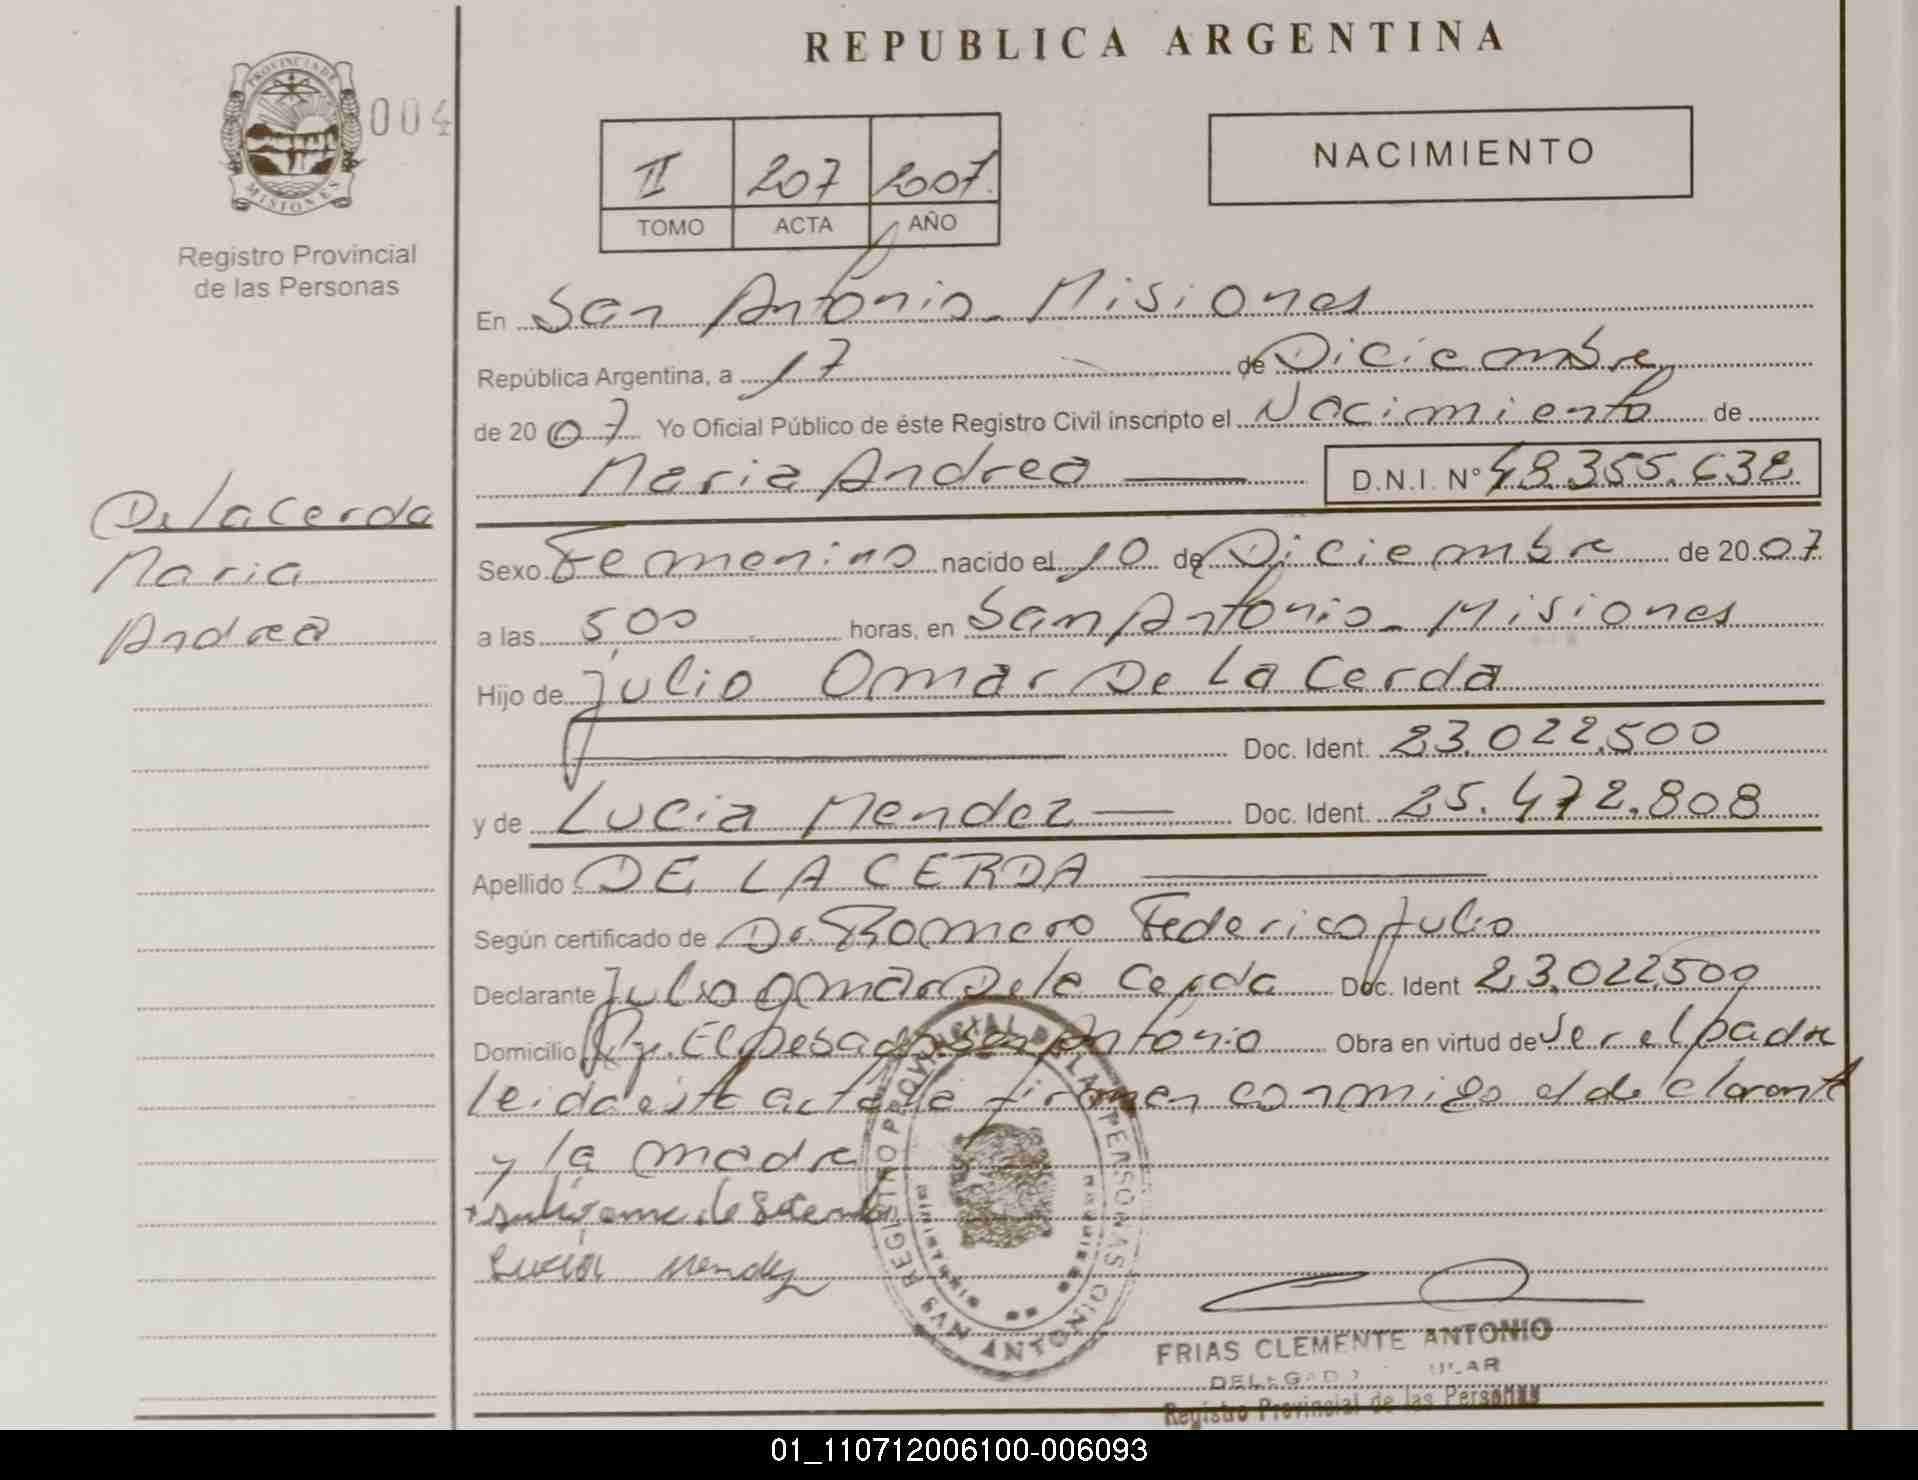 REPUBLICA ARGENTINA
PROVINCIA DE MISIONES
004
Registro Provincial
de las Personas
II 207 2007
TOMO ACTA AÑO
NACIMIENTO
En San Antonio - Misiones
República Argentina, a 17 de Diciembre
de 2007 Yo Oficial Público de éste Registro Civil inscripto el Nacimiento de
Maria Andrea D.N.I. Nº 48.355.638
De la Cerda
Maria
Andrea
Sexo Femenino nacido el 10 de Diciembre de 2007
a las 5,00 horas, en San Antonio - Misiones
Hijo de Julio Omar De La Cerda
Doc. Ident. 23.022.500
y de Lucia Mendez Doc. Ident. 25.472.808
Apellido DE LA CERDA
Según certificado de Dr. Romero Federico Julio
Declarante Julio Omar De la Cerda Doc. Ident 23.022.500
Domicilio San Antonio Obra en virtud de ser el padre
leida esta acta la firman conmigo el declarante
y la madre
Lucia Mendez
REGISTRO PROVINCIAL DE LAS PERSONAS
SAN ANTONIO
FRIAS CLEMENTE ANTONIO
Registro Provincial de las Personas
01_110712006100-006093